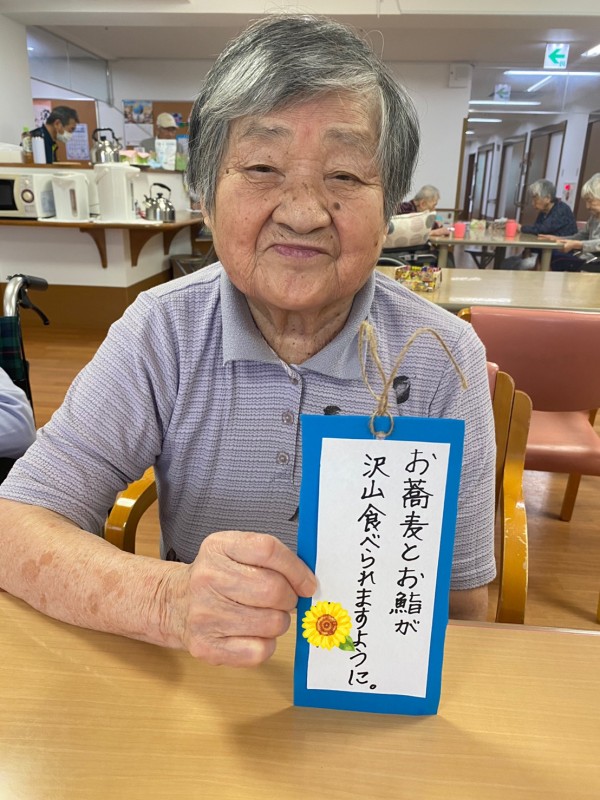 お蕎麦とお鮨が
沢山食べられますように。